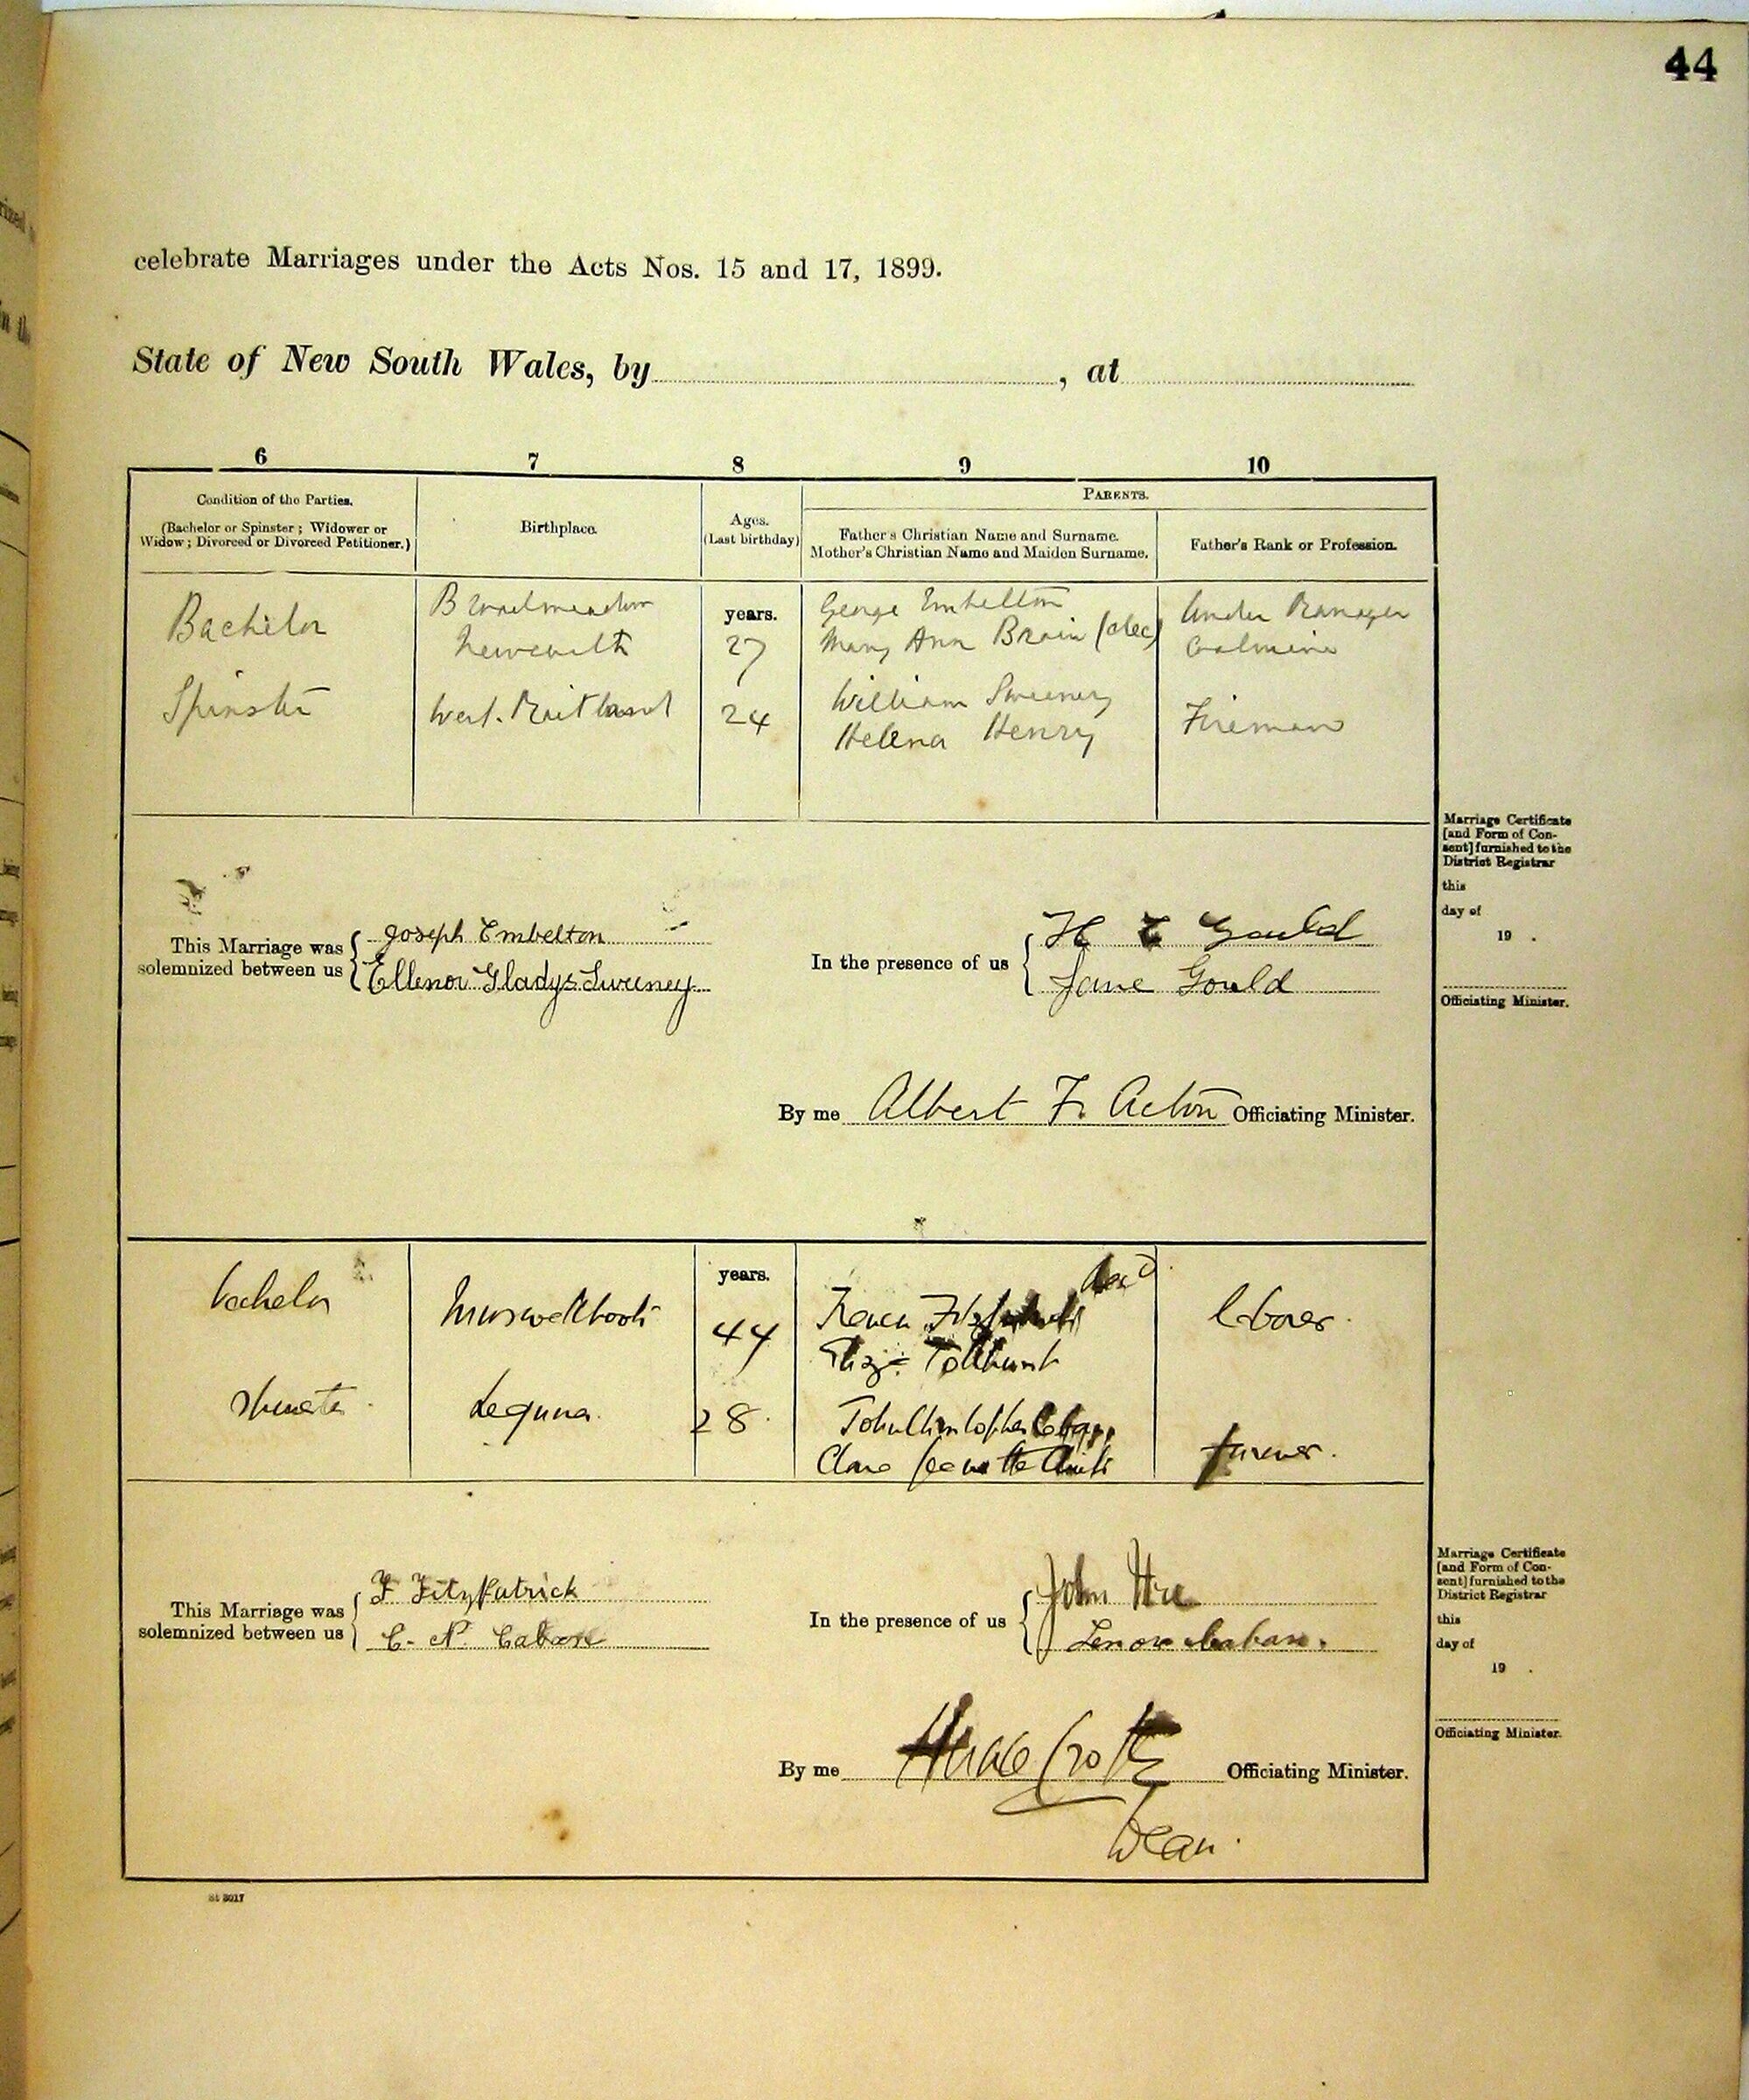 44
celebrate Marriages under the Acts Nos. 15 and 17, 1899.
State of New South Wales, by , at
6 7 8 9 10
Condition of the Parties.
(Bachelor or Spinster; Widower or
Widow; Divorced or Divorced Petitioner.)
Birthplace.
Ages.
(Last birthday)
PARENTS.
Father's Christian Name and Surname.
Mother's Christian Name and Maiden Surname.
Father's Rank or Profession.
Bachelor
Broadmeadow
Newcastle
years.
27
George Embelton
Mary Ann Brain (dec)
Under Manager
Coalmine
Spinster
West. Maitland
24
William Sweeney
Helena Henry
Fireman
Marriage Certificate
[and Form of Con-
sent] furnished to the
District Registrar
this
day of
19 .
Officiating Minister.
This Marriage was
solemnized between us
Joseph Embelton
Ellenor Gladys Sweeney
In the presence of us
H E Gould
Jane Gould
By me Albert F. Acton Officiating Minister.
bachelor
Muswellbrook
years.
44
decd
Eliza Tollhurst
laborer
Laguna
28
farmer.
This Marriage was
solemnized between us
F FitzPatrick
C. N.
In the presence of us
John
Lenore
Marriage Certificate
[and Form of Con-
sent] furnished to the
District Registrar
this
day of
19 .
Officiating Minister.
By me Officiating Minister.
Dean.
St 3017